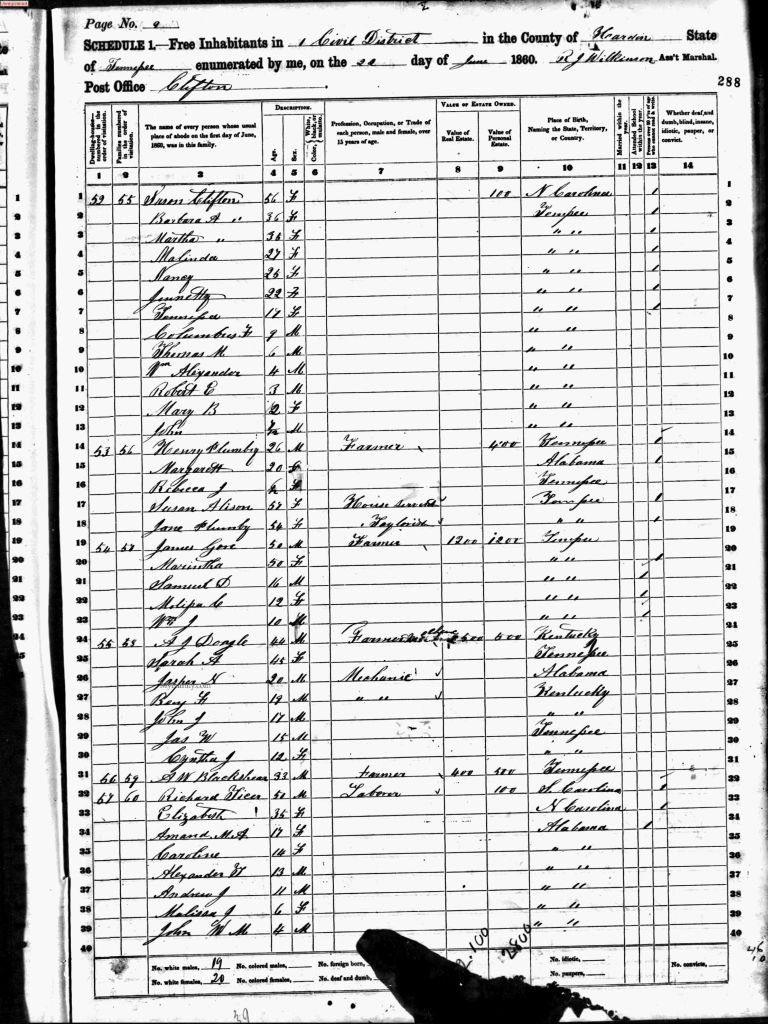 Page No. 9
2
SCHEDULE 1.—Free Inhabitants in 1 Civil District in the County of Hardin State
of Tennessee enumerated by me, on the 22 day of June 1860. R J Wilkinson Ass't Marshal.
288
Post Office Clifton
Dwelling-houses numbered in the order of visitation.
Families numbered in the order of visitation.
The name of every person whose usual place of abode on the first day of June, 1860, was in this family.
DESCRIPTION.
Age.
Sex.
Color, White, black, or mulatto.
Profession, Occupation, or Trade of each person, male and female, over 15 years of age.
VALUE OF ESTATE OWNED.
Value of Real Estate.
Value of Personal Estate.
Place of Birth, Naming the State, Territory, or Country.
Married within the year.
Attended School within the year.
Whether deaf and dumb, blind, insane, idiotic, pauper, or convict.
1 2 3 4 5 6 7 8 9 10 11 12 13 14
1 55 Clifton 56 F 100 N Carolina 1 1
2 Barbara A " 36 F Tennessee 1 2
3 Martha " F " " 1 3
4 Malinda 27 F " " 1 4
5 Nancy 25 F " " 1 5
6 22 F " " 1 6
7 Tennessee F " " 1 7
8 Columbus F 9 M " " 8
9 Thomas M 6 M " " 9
10 Wm Alexander 4 M " " 10
11 Robert E 3 M " " 11
12 Mary B F " " 12
13 John M " " 13
14 53 56 Henry 26 M Farmer 400 Tennessee 1 14
15 Margarett 20 F Alabama 1 15
16 Rebecca J F Tennessee 16
17 Susan Alison F House servant Tennessee 1 17
18 Jane 54 F " " 1 18
19 54 57 James Gore 50 M Farmer 1200 1200 Tennessee 19
20 50 F " " 1 20
21 Samuel D 16 M " " 1 21
22 Melissa C 12 F " " 1 22
23 Wm J 10 M " " 1 23
24 55 58 A J 44 M Farmer 500 Kentucky 24
25 Sarah A 45 F Tennessee 25
26 Jasper N 20 M Mechanic Alabama 26
27 Benj F 19 M " " Kentucky 27
28 John J 17 M " " 28
29 Jas W 15 M Tennessee 29
30 Cyntha J 12 F " " 30
31 56 59 A W Blackshear 33 M Farmer 400 500 Tennessee 31
32 57 60 Richard 50 M Laborer 100 S Carolina 1 32
33 Elizabeth 35 F N Carolina 1 33
34 Amand M A 17 F Alabama 1 34
35 Caroline 14 F " " 35
36 Alexander 13 M " " 36
37 Andrew J 11 M " " 37
38 Malissa J 6 F " " 38
39 John W M 4 M " " 39
40 40
2.100 2800
No. white males, 19 No. colored males, No. foreign born, No. idiotic, No. convicts,
No. white females, 20 No. colored females, No. deaf and dumb, No. paupers,
39